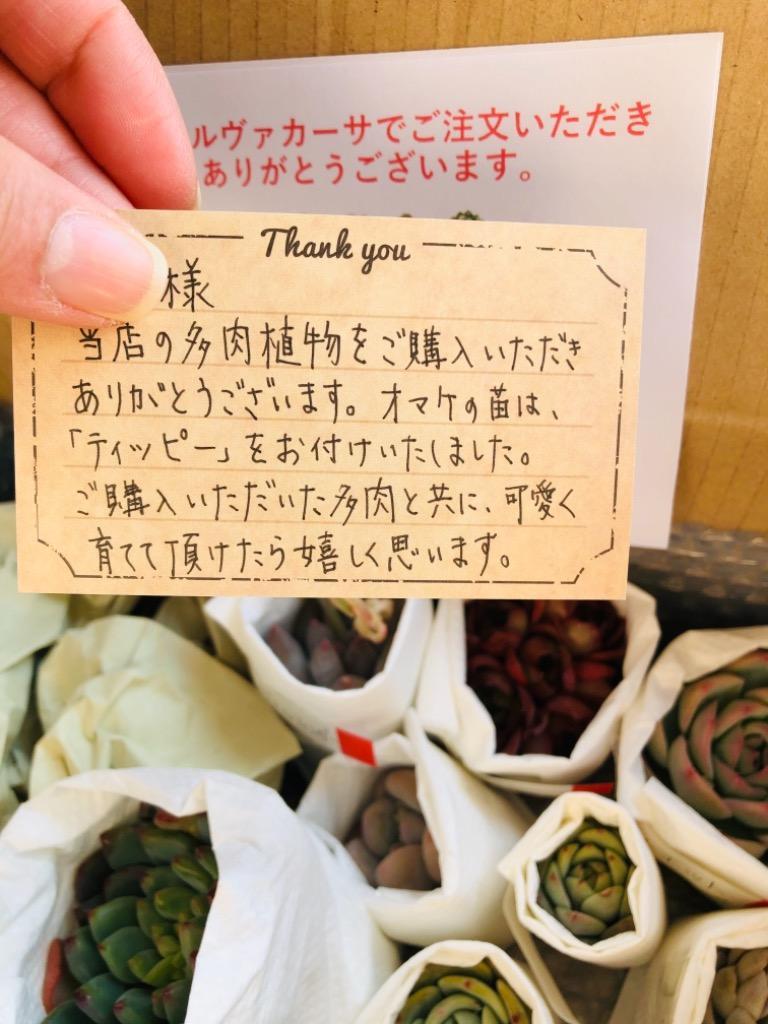 ルヴァカーサでご注文いただき
ありがとうございます。
Thank you
様
当店の多肉植物をご購入いただき
ありがとうございます。オマケの苗は、
「ティッピー」をお付けいたしました。
ご購入いただいた多肉と共に、可愛く
育てて頂けたら嬉しく思います。